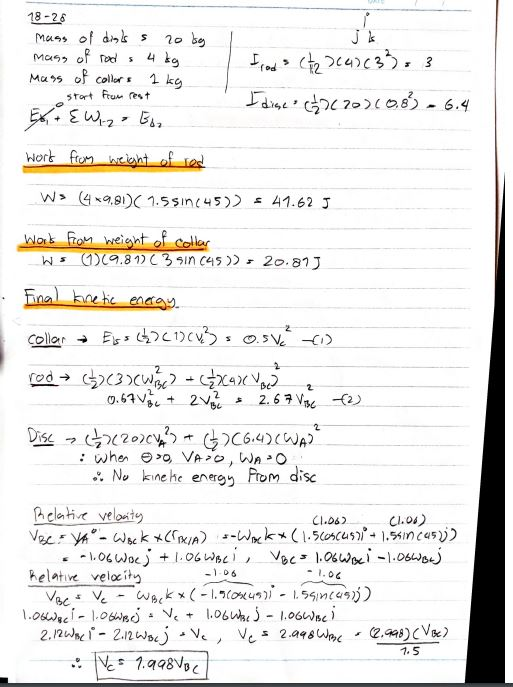 18-26
Mass of disk = 20 kg
Mass of rod = 4 kg
Mass of collar = 1 kg
i
j k
I rod = (1/12)(4)(3²) = 3
I disc = (1/2)(20)(0.8²) = 6.4
0 start from rest
Ek1 + ΣW1-2 = Ek2
Work from weight of rod
W = (4×9.81)(1.5sin(45)) = 41.62 J
Work from weight of collar
W = (1)(9.81)(3 sin(45)) = 20.81 J
Final kinetic energy
collar → Ek = (1/2)(1)(Vc²) = 0.5Vc² -(1)
rod → (1/2)(3)(WBC²) + (1/2)(4)(VBC)²
0.67VBC² + 2VBC² = 2.67VBC² -(2)
Disc → (1/2)(20)(VA²) + (1/2)(6.4)(WA)²
: when θ=0, VA=0, WA=0
∴ No kinetic energy from disc
Relative velocity (1.06) (1.06)
VBC = VA⁰ - WBC k × (rBC/A) = -WBC k × (1.5cos(45)i + 1.5sin(45)j)
= -1.06WBC j + 1.06WBC i, VBC = 1.06WBC i - 1.06WBC j
Relative velocity -1.06 -1.06
VBC = Vc - WBC k × (-1.5(cos45)i - 1.5sin(45)j)
1.06WBC i - 1.06WBC j = Vc + 1.06WBC j - 1.06WBC i
2.12WBC i - 2.12WBC j = Vc, Vc = 2.998WBC = (2.998)(VBC)/1.5
∴ Vc = 1.998VBC